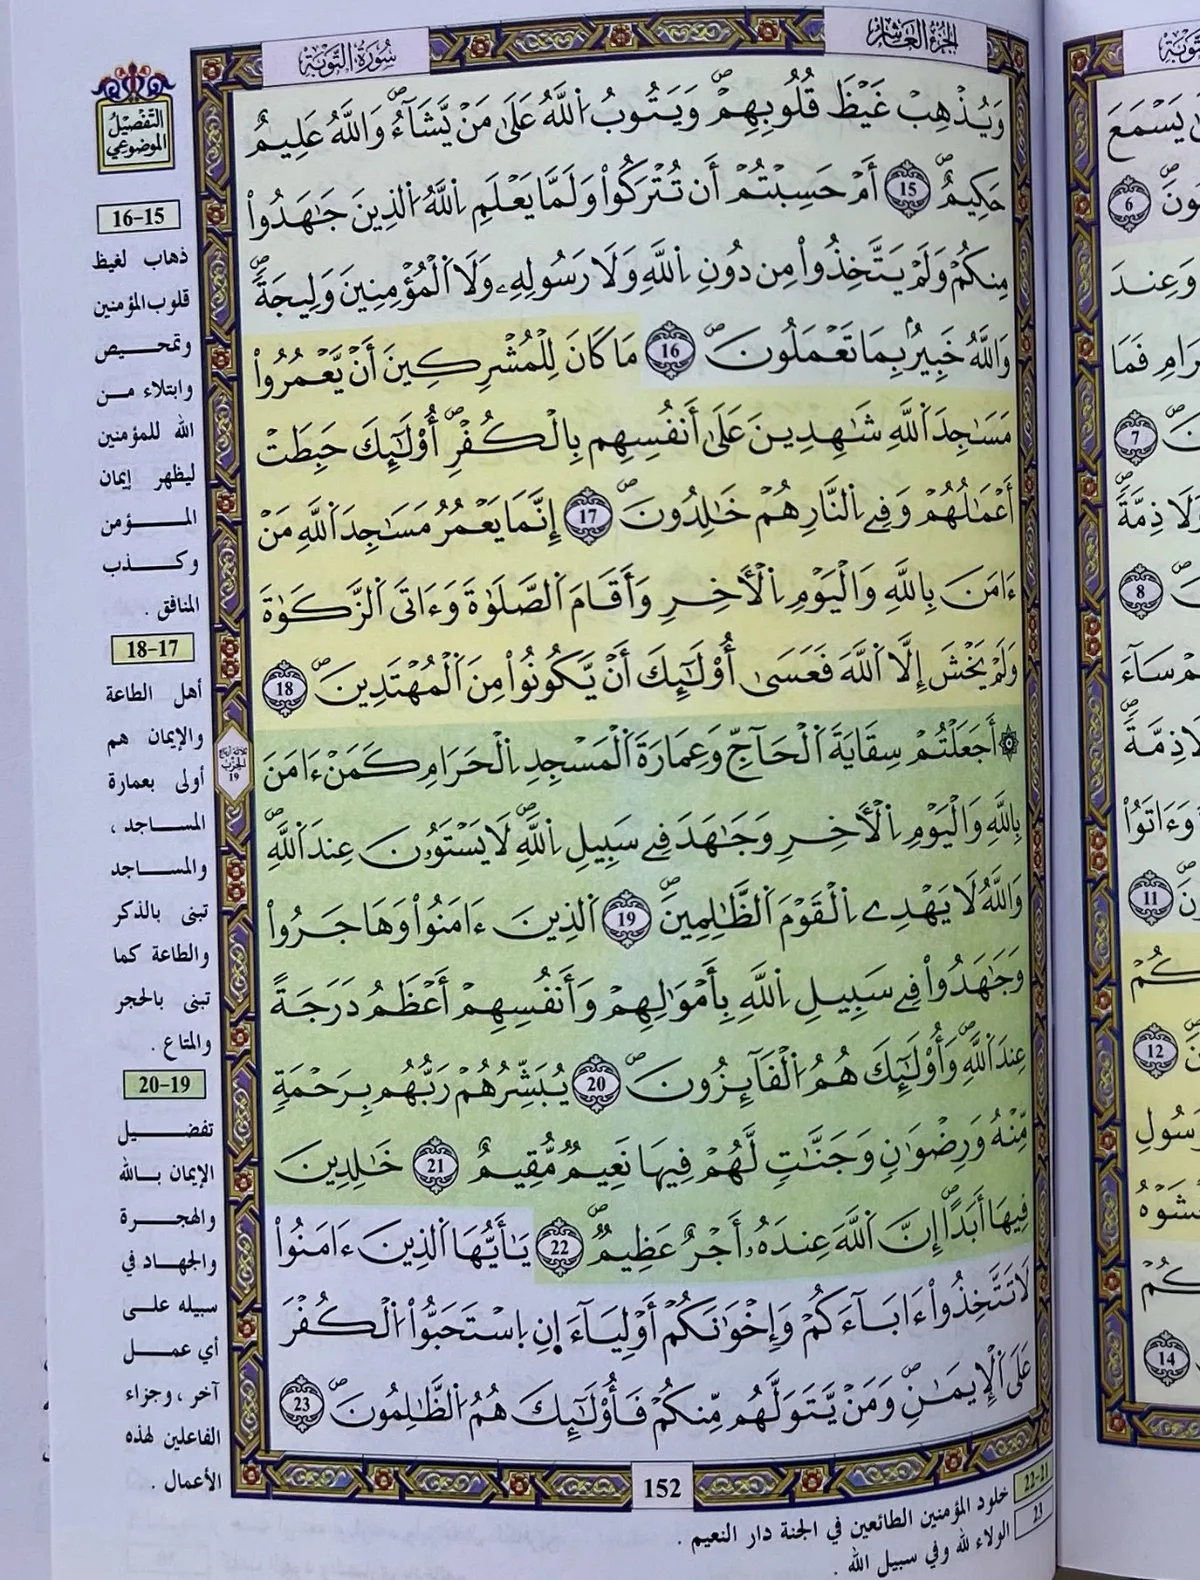 سُورَةُ التَّوْبَة
الجُزْءُ العَاشِر
وَيُذْهِبْ غَيْظَ قُلُوبِهِمْۖ وَيَتُوبُ اُ۬للَّهُ عَلَىٰ مَنْ يَّشَآءُۖ وَاللَّهُ عَلِيمٌ
حَكِيمٌۖ 15 أَمْ حَسِبْتُمْ أَن تُتْرَكُواْ وَلَمَّا يَعْلَمِ اِ۬للَّهُ اُ۬لذِينَ جَٰهَدُواْ
مِنكُمْ وَلَمْ يَتَّخِذُواْ مِن دُونِ اِ۬للَّهِ وَلَا رَسُولِهِۦ وَلَا اَ۬لْمُؤْمِنِينَ وَلِيجَةٗۖ
وَاللَّهُ خَبِيرُۢ بِمَا تَعْمَلُونَۖ 16 مَا كَانَ لِلْمُشْرِكِينَ أَنْ يَّعْمُرُواْ
مَسَٰجِدَ اَ۬للَّهِ شَٰهِدِينَ عَلَىٰٓ أَنفُسِهِم بِالْكُفْرِۖ أُوْلَٰٓئِكَ حَبِطَتَ
اَعْمَٰلُهُمْ وَفِي اِ۬لنَّارِ هُمْ خَٰلِدُونَۖ 17 إِنَّمَا يَعْمُرُ مَسَٰجِدَ اَ۬للَّهِ مَنْ
ءَامَنَ بِاللَّهِ وَالْيَوْمِ اِ۬لْأٓخِرِ وَأَقَامَ اَ۬لصَّلَوٰةَ وَءَاتَى اَ۬لزَّكَوٰةَ
وَلَمْ يَخْشَ إِلَّا اَ۬للَّهَ فَعَسَىٰٓ أُوْلَٰٓئِكَ أَنْ يَّكُونُواْ مِنَ اَ۬لْمُهْتَدِينَۖ 18
۞ أَجَعَلْتُمْ سِقَايَةَ اَ۬لْحَآجِّ وَعِمَارَةَ اَ۬لْمَسْجِدِ اِ۬لْحَرَامِ كَمَنْ ءَامَنَ
بِاللَّهِ وَالْيَوْمِ اِ۬لْأٓخِرِ وَجَٰهَدَ فِي سَبِيلِ اِ۬للَّهِۖ لَا يَسْتَوُۥنَ عِندَ اَ۬للَّهِۖ
وَاللَّهُ لَا يَهْدِي اِ۬لْقَوْمَ اَ۬لظَّٰلِمِينَۖ 19 اَ۬لذِينَ ءَامَنُواْ وَهَاجَرُواْ
وَجَٰهَدُواْ فِي سَبِيلِ اِ۬للَّهِ بِأَمْوَٰلِهِمْ وَأَنفُسِهِمْ أَعْظَمُ دَرَجَةً
عِندَ اَ۬للَّهِۖ وَأُوْلَٰٓئِكَ هُمُ اُ۬لْفَآئِزُونَۖ 20 يُبَشِّرُهُمْ رَبُّهُم بِرَحْمَةٖ
مِّنْهُ وَرِضْوَٰنٖ وَجَنَّٰتٖ لَّهُمْ فِيهَا نَعِيمٞ مُّقِيمٌ 21 خَٰلِدِينَ
فِيهَآ أَبَداًۖ إِنَّ اَ۬للَّهَ عِندَهُۥٓ أَجْرٌ عَظِيمٞۖ 22 يَٰٓأَيُّهَا اَ۬لذِينَ ءَامَنُواْ
لَا تَتَّخِذُوٓاْ ءَابَآءَكُمْ وَإِخْوَٰنَكُمْ أَوْلِيَآءَ اِ۪نِ اِ۪سْتَحَبُّواْ اُ۬لْكُفْرَ
عَلَى اَ۬لْإِيمَٰنِۖ وَمَنْ يَّتَوَلَّهُم مِّنكُمْ فَأُوْلَٰٓئِكَ هُمُ اُ۬لظَّٰلِمُونَۖ 23
152
التَّفْصِيلُ
الموضوعي
16-15
ذهاب لغيظ
قلوب المؤمنين
وتمحيص
وابتلاء من
الله للمؤمنين
ليظهر إيمان
المؤمن
وكذب
المنافق .
18-17
أهل الطاعة
والإيمان هم
أولى بعمارة
المساجد ،
والمساجد
تبنى بالذكر
والطاعة كما
تبنى بالحجر
والمتاع .
20-19
تفضيل
الإيمان بالله
والهجرة
والجهاد في
سبيله على
أي عمل
آخر ، وجزاء
الفاعلين لهذه
الأعمال .
ثلاثة أرباع
الحزب
19
22-21 خلود المؤمنين الطائعين في الجنة دار النعيم .
23 الولاء لله وفي سبيل الله .
يَسْمَعَ
6
وَعِندَ
فَمَا
7
ذِمَّةٗ
8
سَآءَ
ذِمَّةٗ
وَءَاتَوُاْ
11
12
14